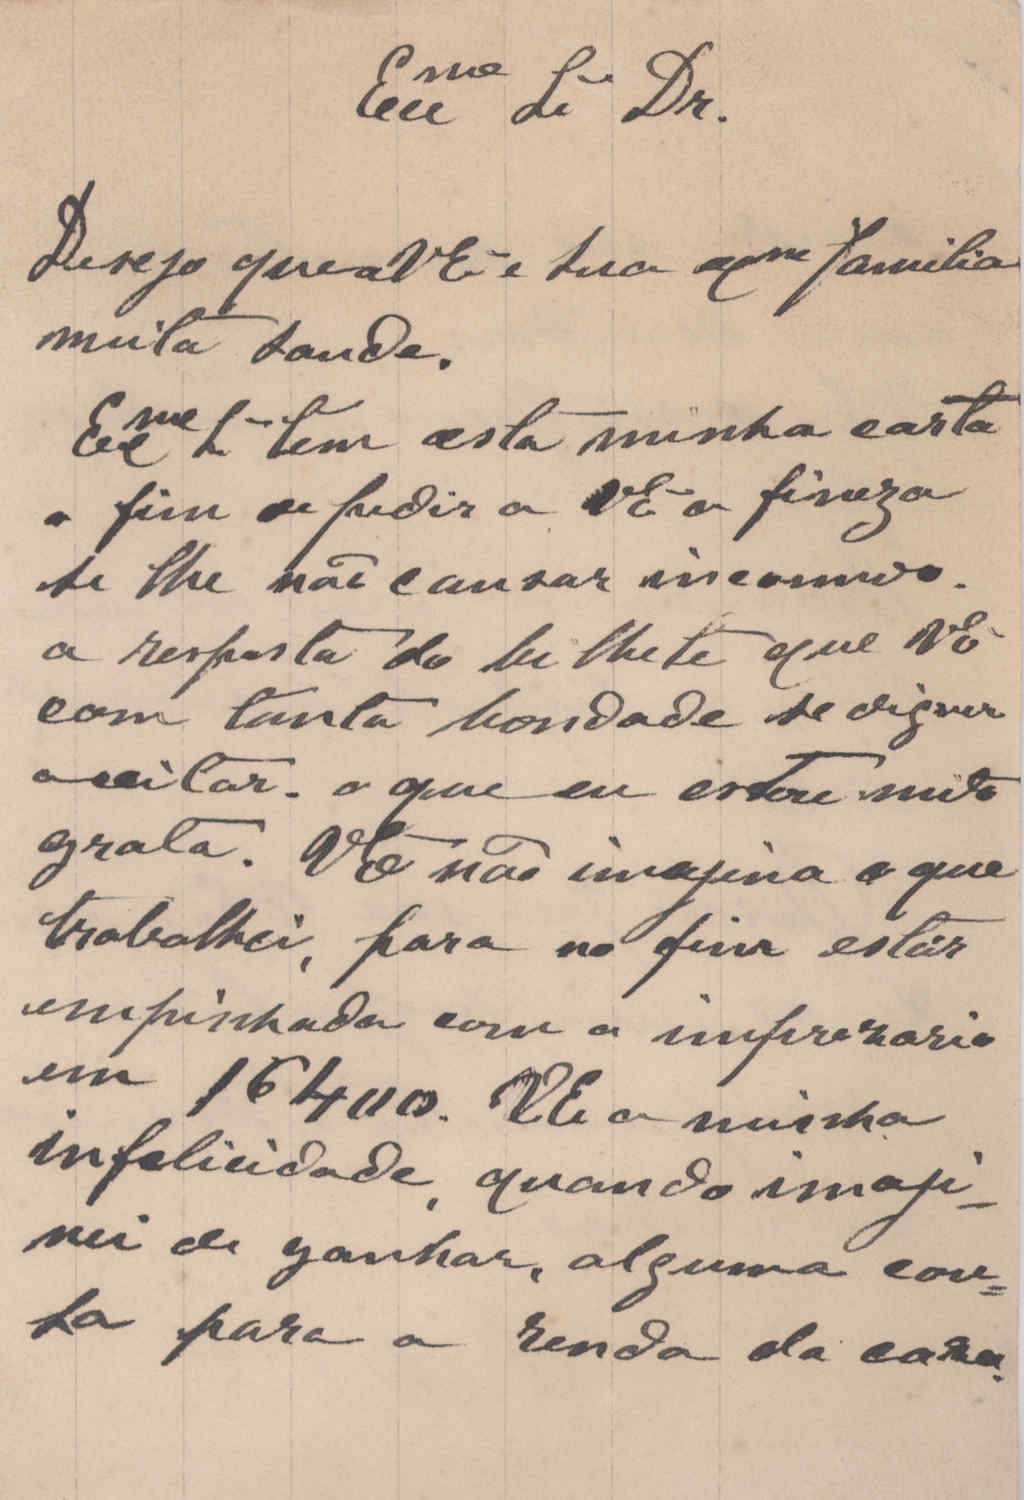 Exme Sr Dr.
Desejo que a VE e sua exme familia
muita saude.
Exme Sr tem esta minha carta
o fim de pedir a VE a fineza
se lhe não causar incomudo.
a resposta do bilhete que VE
com tanta bondade se dignou
aceitar. o que eu estou muto
grata. VE não imagina o que
trabalhei, para no fim estar
empinhada com a imprezaria
em VE a minha
infelicidade, quando imaji-
nei de ganhar, alguma cou=
sa para a renda da caza.